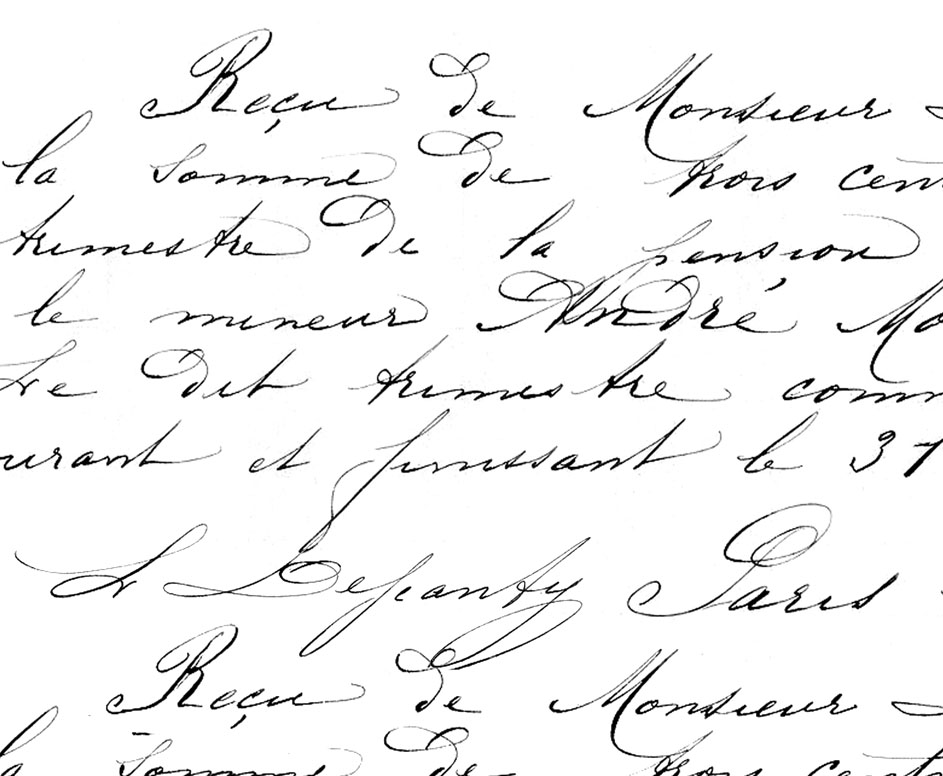 Reçu de Monsieur
la somme de trois cent
trimestre de la pension
le mineur André Mo
Le dit trimestre comm
ourant et finissant le 31
Paris
Reçu de Monsieur
la somme de trois cent